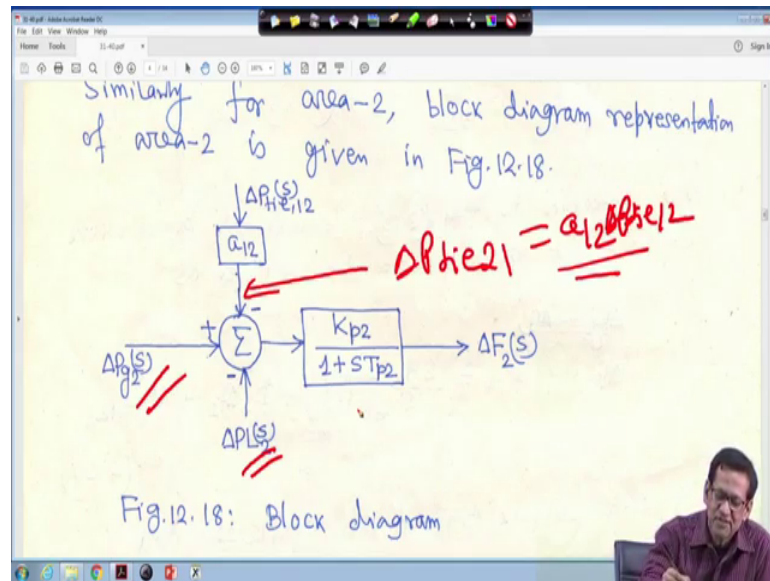 31-40.pdf - Adobe Acrobat Reader DC
File Edit View Window Help
Home Tools 31-40.pdf × Sign In
Similarly for area-2, block diagram representation
of area-2 is given in Fig.12.18.
ΔPtie,12(s)
a12
ΔPtie21 = a12 ΔPtie12
-
+
Σ
Kp2
1+STp2
ΔF2(s)
ΔPg2(s)
-
ΔPL2(s)
Fig.12.18: Block diagram